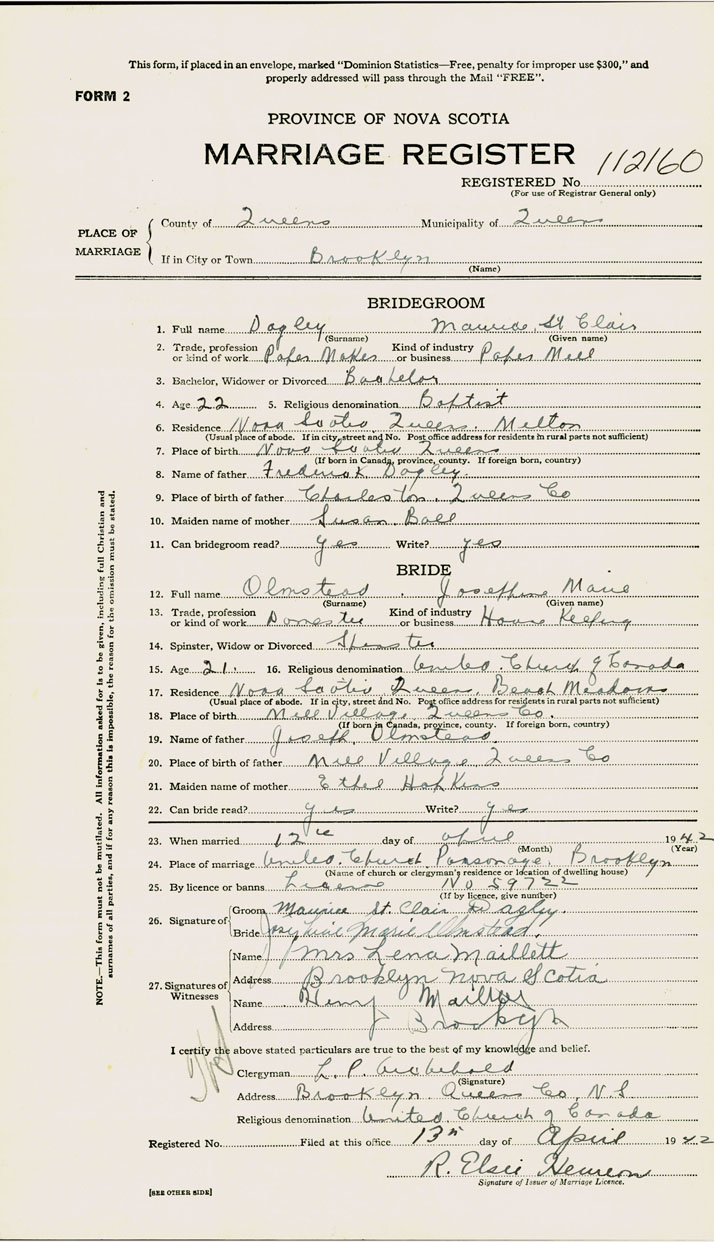 This form, if placed in an envelope, marked “Dominion Statistics—Free, penalty for improper use $300,” and
properly addressed will pass through the Mail “FREE”.
FORM 2
PROVINCE OF NOVA SCOTIA
MARRIAGE REGISTER 112160
REGISTERED No.
(For use of Registrar General only)
PLACE OF MARRIAGE
County of Queens Municipality of Queens
If in City or Town Brooklyn
(Name)
BRIDEGROOM
1. Full name Dagley Maurice St Clair
(Surname) (Given name)
2. Trade, profession or kind of work Paper Maker Kind of industry or business Paper Mill
3. Bachelor, Widower or Divorced Bachelor
4. Age 22 5. Religious denomination Baptist
6. Residence Nova Scotia Queens. Milton
(Usual place of abode. If in city, street and No. Post office address for residents in rural parts not sufficient)
7. Place of birth Nova Scotia Queens
(If born in Canada, province, county. If foreign born, country)
8. Name of father Frederick Dagley.
9. Place of birth of father Charleston. Queens Co
10. Maiden name of mother Susan Ball
11. Can bridegroom read? yes Write? yes
BRIDE
12. Full name Olmstead Josephine Marie
(Surname) (Given name)
13. Trade, profession or kind of work Domestic Kind of industry or business House Keeping
14. Spinster, Widow or Divorced Spinster
15. Age 21. 16. Religious denomination United Church of Canada
17. Residence Nova Scotia Queens, Beach Meadows
(Usual place of abode. If in city, street and No. Post office address for residents in rural parts not sufficient)
18. Place of birth Mill Village, Queens Co.
(If born in Canada, province, county. If foreign born, country)
19. Name of father Joseph Olmstead.
20. Place of birth of father Mill Village Queens Co
21. Maiden name of mother Ethel Hopkins
22. Can bride read? yes Write? yes
23. When married 12th day of April 1942
(Month) (Year)
24. Place of marriage United Church Parsonage, Brooklyn
(Name of church or clergyman's residence or location of dwelling house)
25. By licence or banns License No 59722
(If by licence, give number)
26. Signature of
Groom Maurice St. Clair Dagley.
Bride Josephine Marie Olmstead.
27. Signatures of Witnesses
Name Mrs Lena Maillett
Address Brooklyn Nova Scotia
Name Henry
Address Brooklyn
I certify the above stated particulars are true to the best of my knowledge and belief.
Clergyman L. P. Archibald
(Signature)
Address Brooklyn. Queens Co, N.S
Religious denomination United Church of Canada
Registered No. Filed at this office 13th day of April 1942
R. Elsie
Signature of Issuer of Marriage Licence.
[SEE OTHER SIDE]
NOTE.—This form must not be mutilated. All information asked for is to be given, including full Christian and
surnames of all parties, and if for any reason this is impossible, the reason for the omission must be stated.